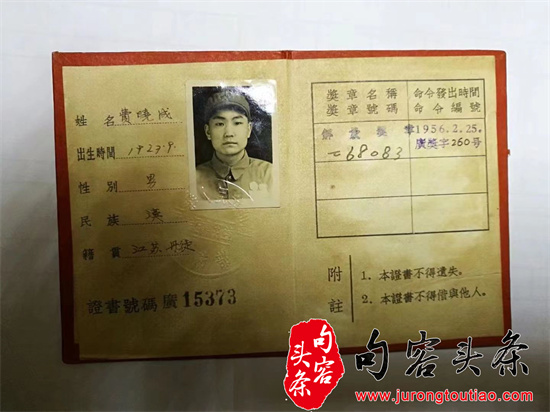 姓名 費曉成
出生時間 1923.9.
性別 男
民族 漢
籍貫 江苏
證書號碼 廣15373
獎章名稱 獎章號碼
命令發出時間 命令編號
解放獎章
68083
1956.2.25.
廣獎字260号
附註
1. 本證書不得遺失。
2. 本證書不得借與他人。
句容头条
句容头条
www.jurongtoutiao.com